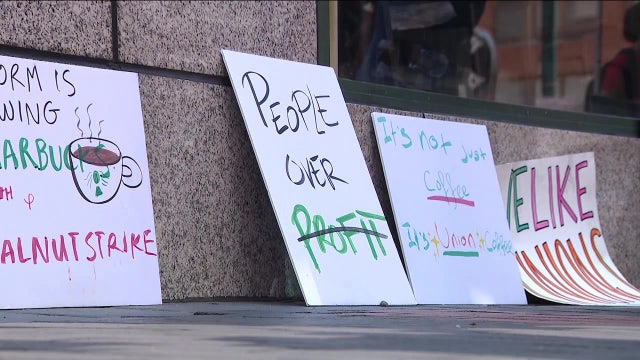 ORM IS
WING
ARBU
ALNUTSTRIKE
PEOPLE
OVER
PROFIT
It's not just
Coffee
It's Union
E LIKE
NIONS